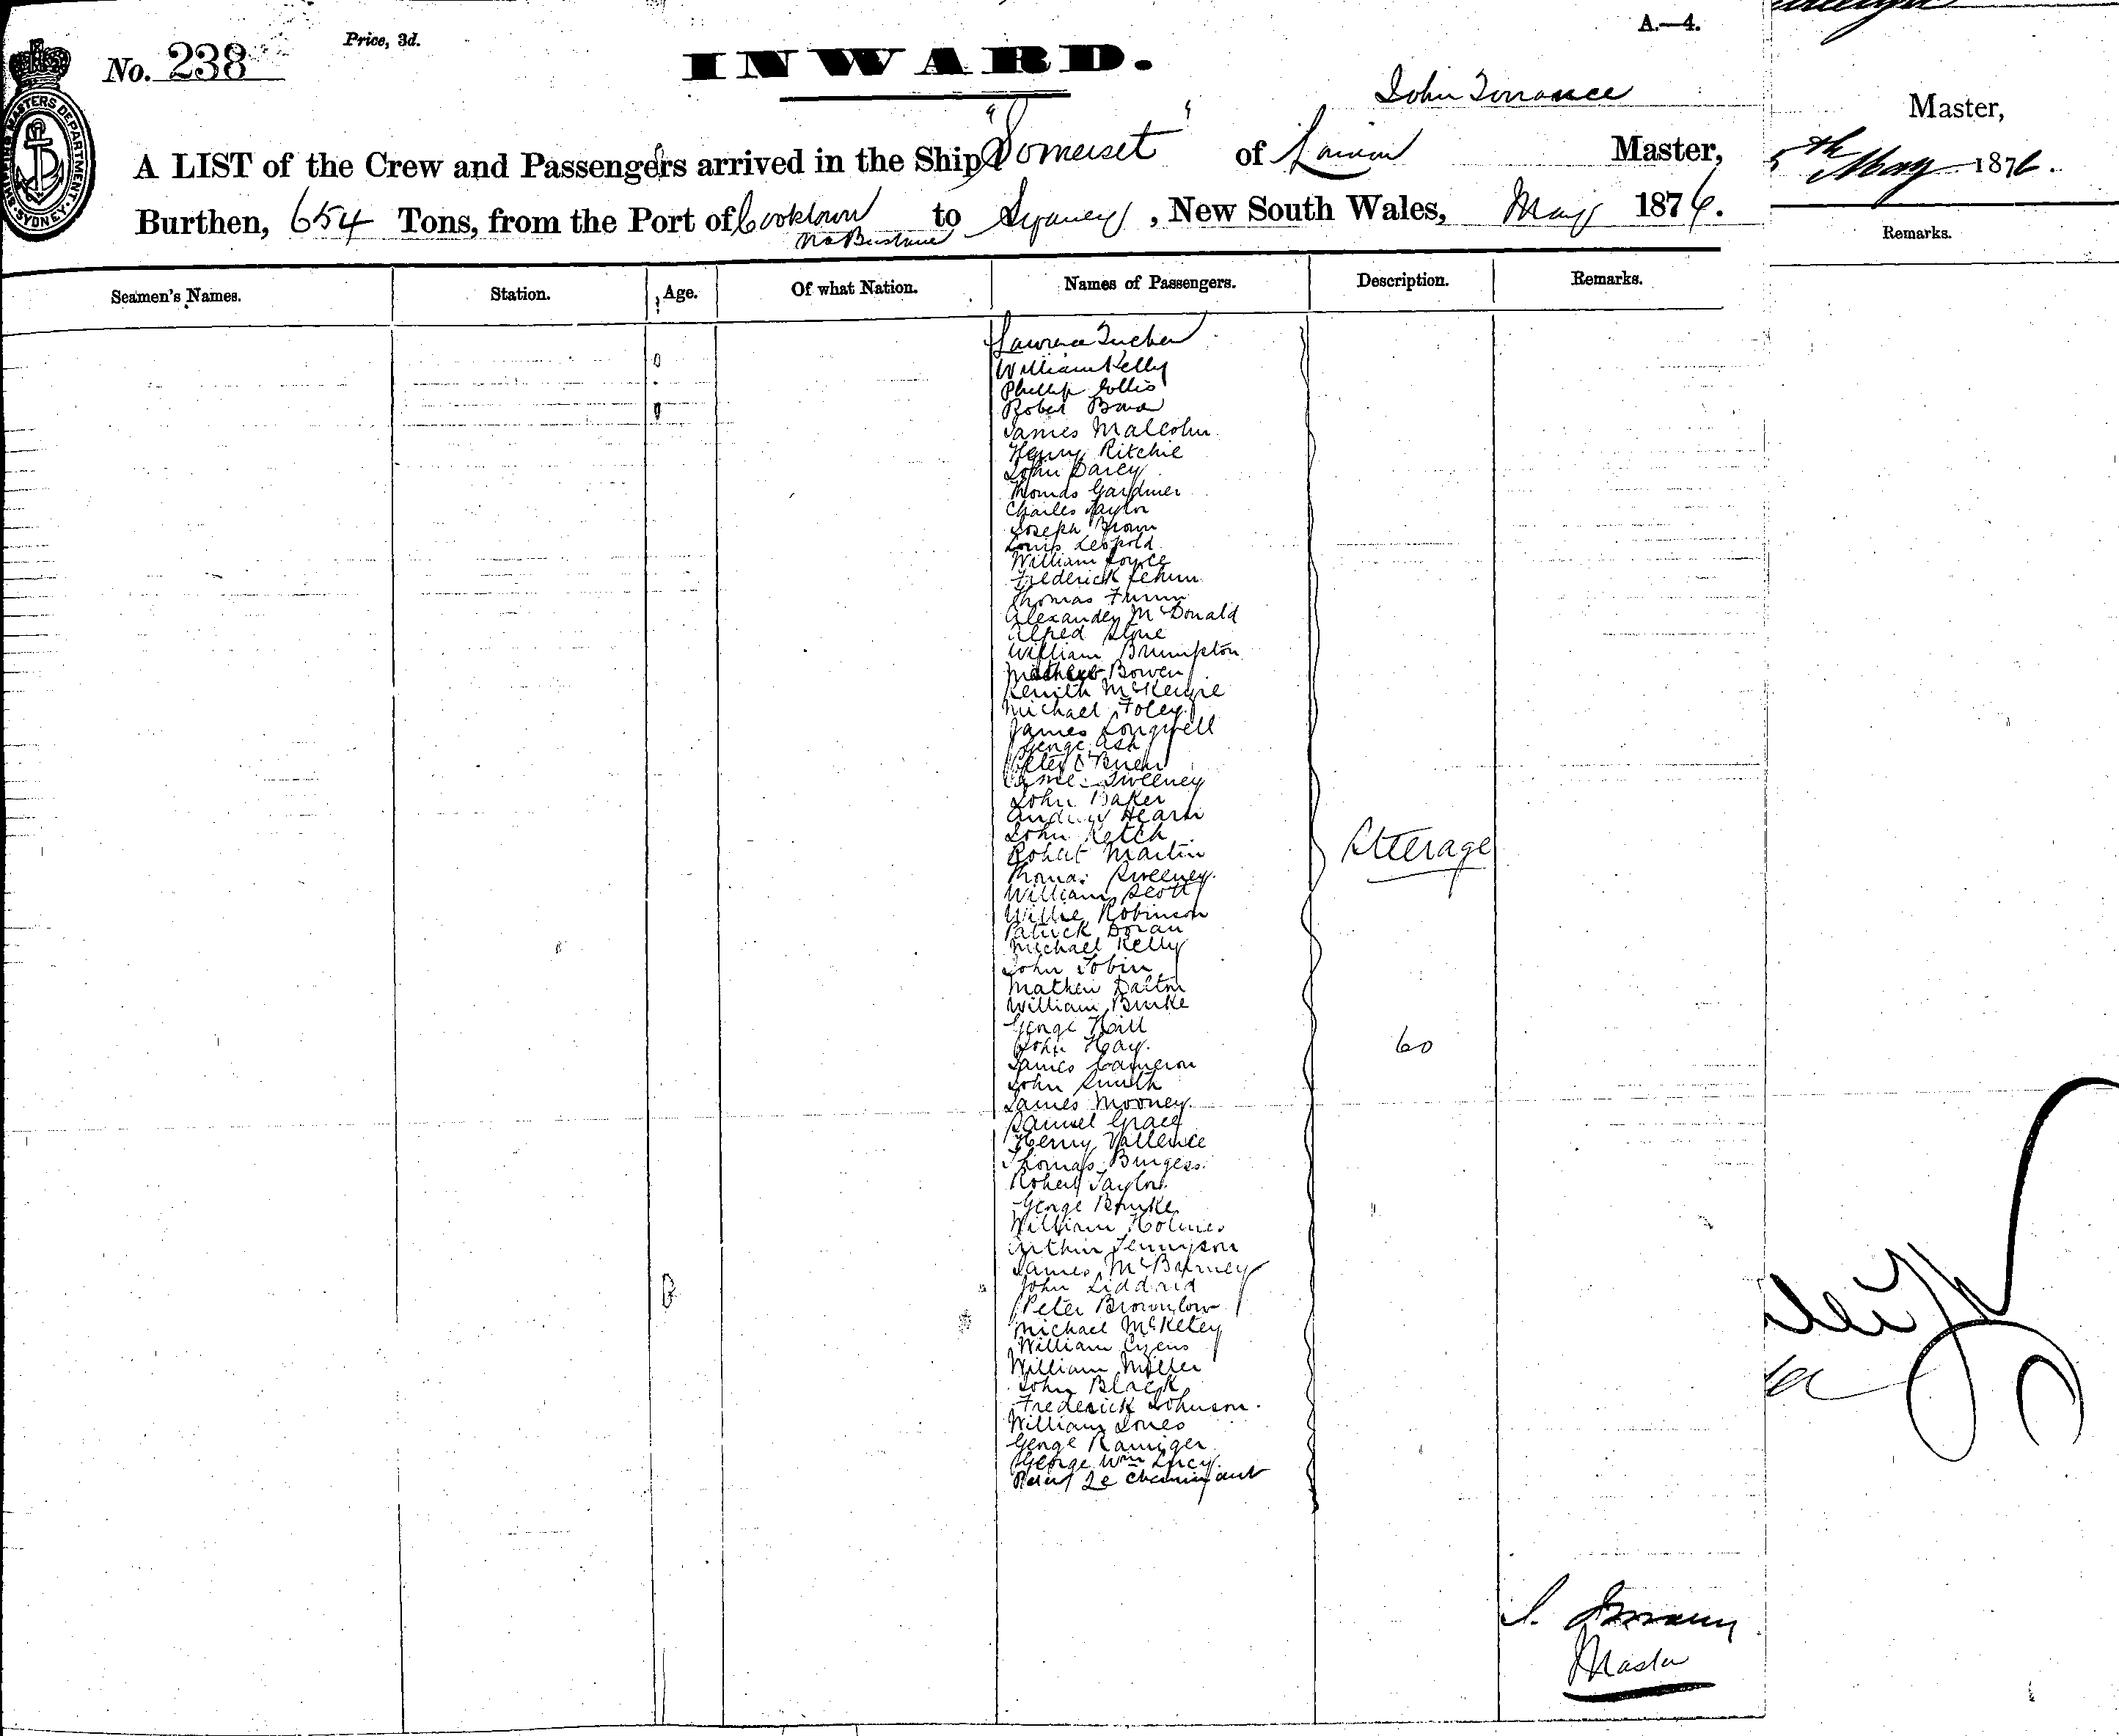 Price, 3d.
A.—4.
No. 238
INWARD.
John Torrance
Master,
SHIPPING MASTERS DEPARTMENT SYDNEY
A LIST of the Crew and Passengers arrived in the Ship "Somerset" of London Master,
5th May 1876.
Burthen, 654 Tons, from the Port of Cooktown to Sydney, New South Wales, May 1876.
via Brisbane
Remarks.
Seamen's Names. Station. Age. Of what Nation. Names of Passengers. Description. Remarks.
Lawrence Tucker
William Kelly
Phillip Collis
Robert
James Malcolm
Henry Ritchie
John Darcy
Thomas Gardiner
Charles Taylor
Joseph Brown
Louis Leopold
William Joyce
Frederick
Thomas
Alexander McDonald
Alfred Stone
William Brumpton
Bowen
Kenith McKenzie
Michael Foley
James Longwell
George Ash
Peter O'Brien
Sweeney
John Baker
Andrew Hearn
John Ketch
Steerage
Robert Martin
Thomas Sweeney
William Scott
Willie Robinson
Patrick Doran
Michael Kelly
John Tobin
Mathew Dalton
William Burke
George Hill
John Hay
60
James Cameron
John Smith
James Mooney
Samuel Grace
Henry Vallence
Thomas Burgess
Robert Taylor
George Burke
William Holmes
Arthur Tennyson
James McBurney
John Liddard
Peter Brownlow
Michael McKeley
William Cyzens
William Miller
John Black
Frederick Johnson
William Jones
George Ramiger
George Wm Lucy
Le Cheminant
J. Torrance
Master